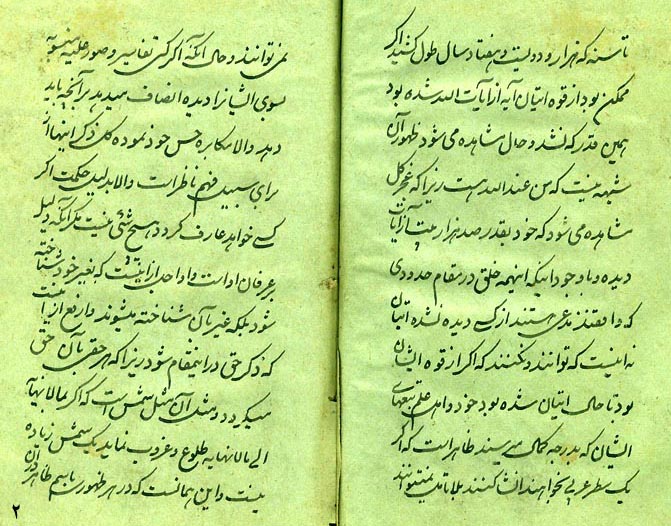 تا سنه که هزار و دویست و هفتاد سال طول کشید اگر
ممکن بود از قوه اتیان آیه از آیات الله شده بود
همین قدر که نشد و حال مشاهده می شود ظهور آن
شبهه نیست که من عندالله هست زیرا که عجز کل
مشاهده می شود که خود بقدر صد هزار بیت از آیات
دیده و با وجود اینکه اینهمه خلق در مقام حدودی
که واقفند مدعی هستند از کسی دیده نشده اتیان
نه اینست که توانند و نکنند که اگر از قوه ایشان
بود تا حال اتیان شده بود خود و اهل علم
ایشان که بدرجه کمال می رسند ظاهر است که اگر
یک سطر عربی بخواهند انشا کنند بلا تأمل نمیتوانند
نمی توانند و حال آنکه اگر کسی تفاسیر و صور علمیه منسوبه
بسوی ایشان را دیده انصاف میدهد بر آنچه باید
دهد والا مکابره حس خود نموده کل ذکر اینها از
برای سبیل فهم ناظر است والا بدلیل حکمت اگر
کسی خواهد عارف گردد هیچ شئی نیست مگر آنکه دلیل
عرفان او است و او اجل از اینست که بغیر خود شناخته
شود بلکه غیر بآن شناخته میشوند و ارفع از اینست
که ذکر حق در این مقام شود زیرا که هر حقی بآن حق
میگردد و مثل آن مثل شمس است که اگر بما لا نهایة
الی ما لا نهایه طلوع و غروب نماید یک شمس زیاده
نیست و این همانست که در هر ظهور باسم ظاهر در آن
۲